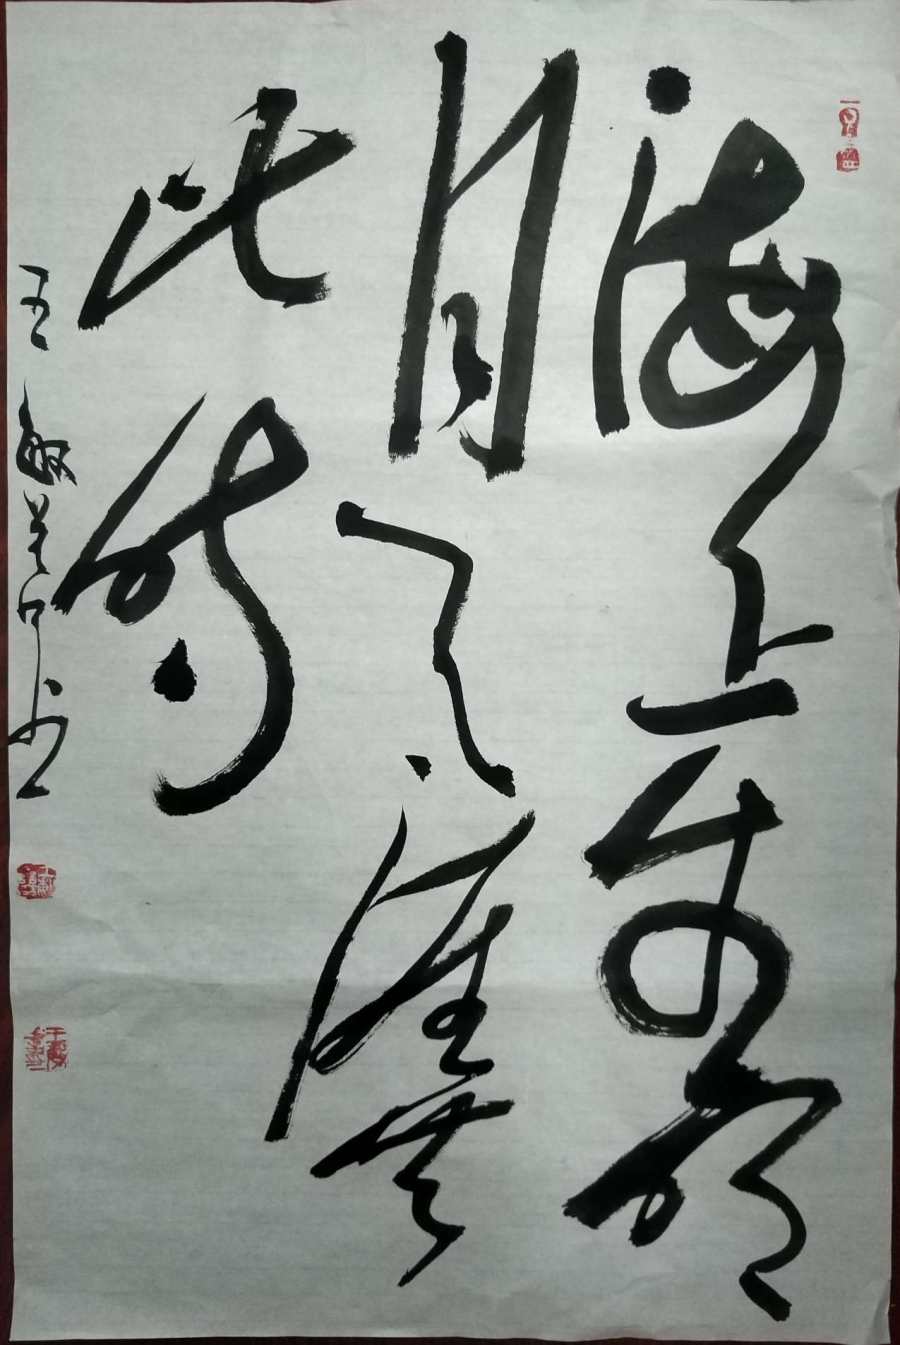 海上生明
月天涯共
此时
王敏